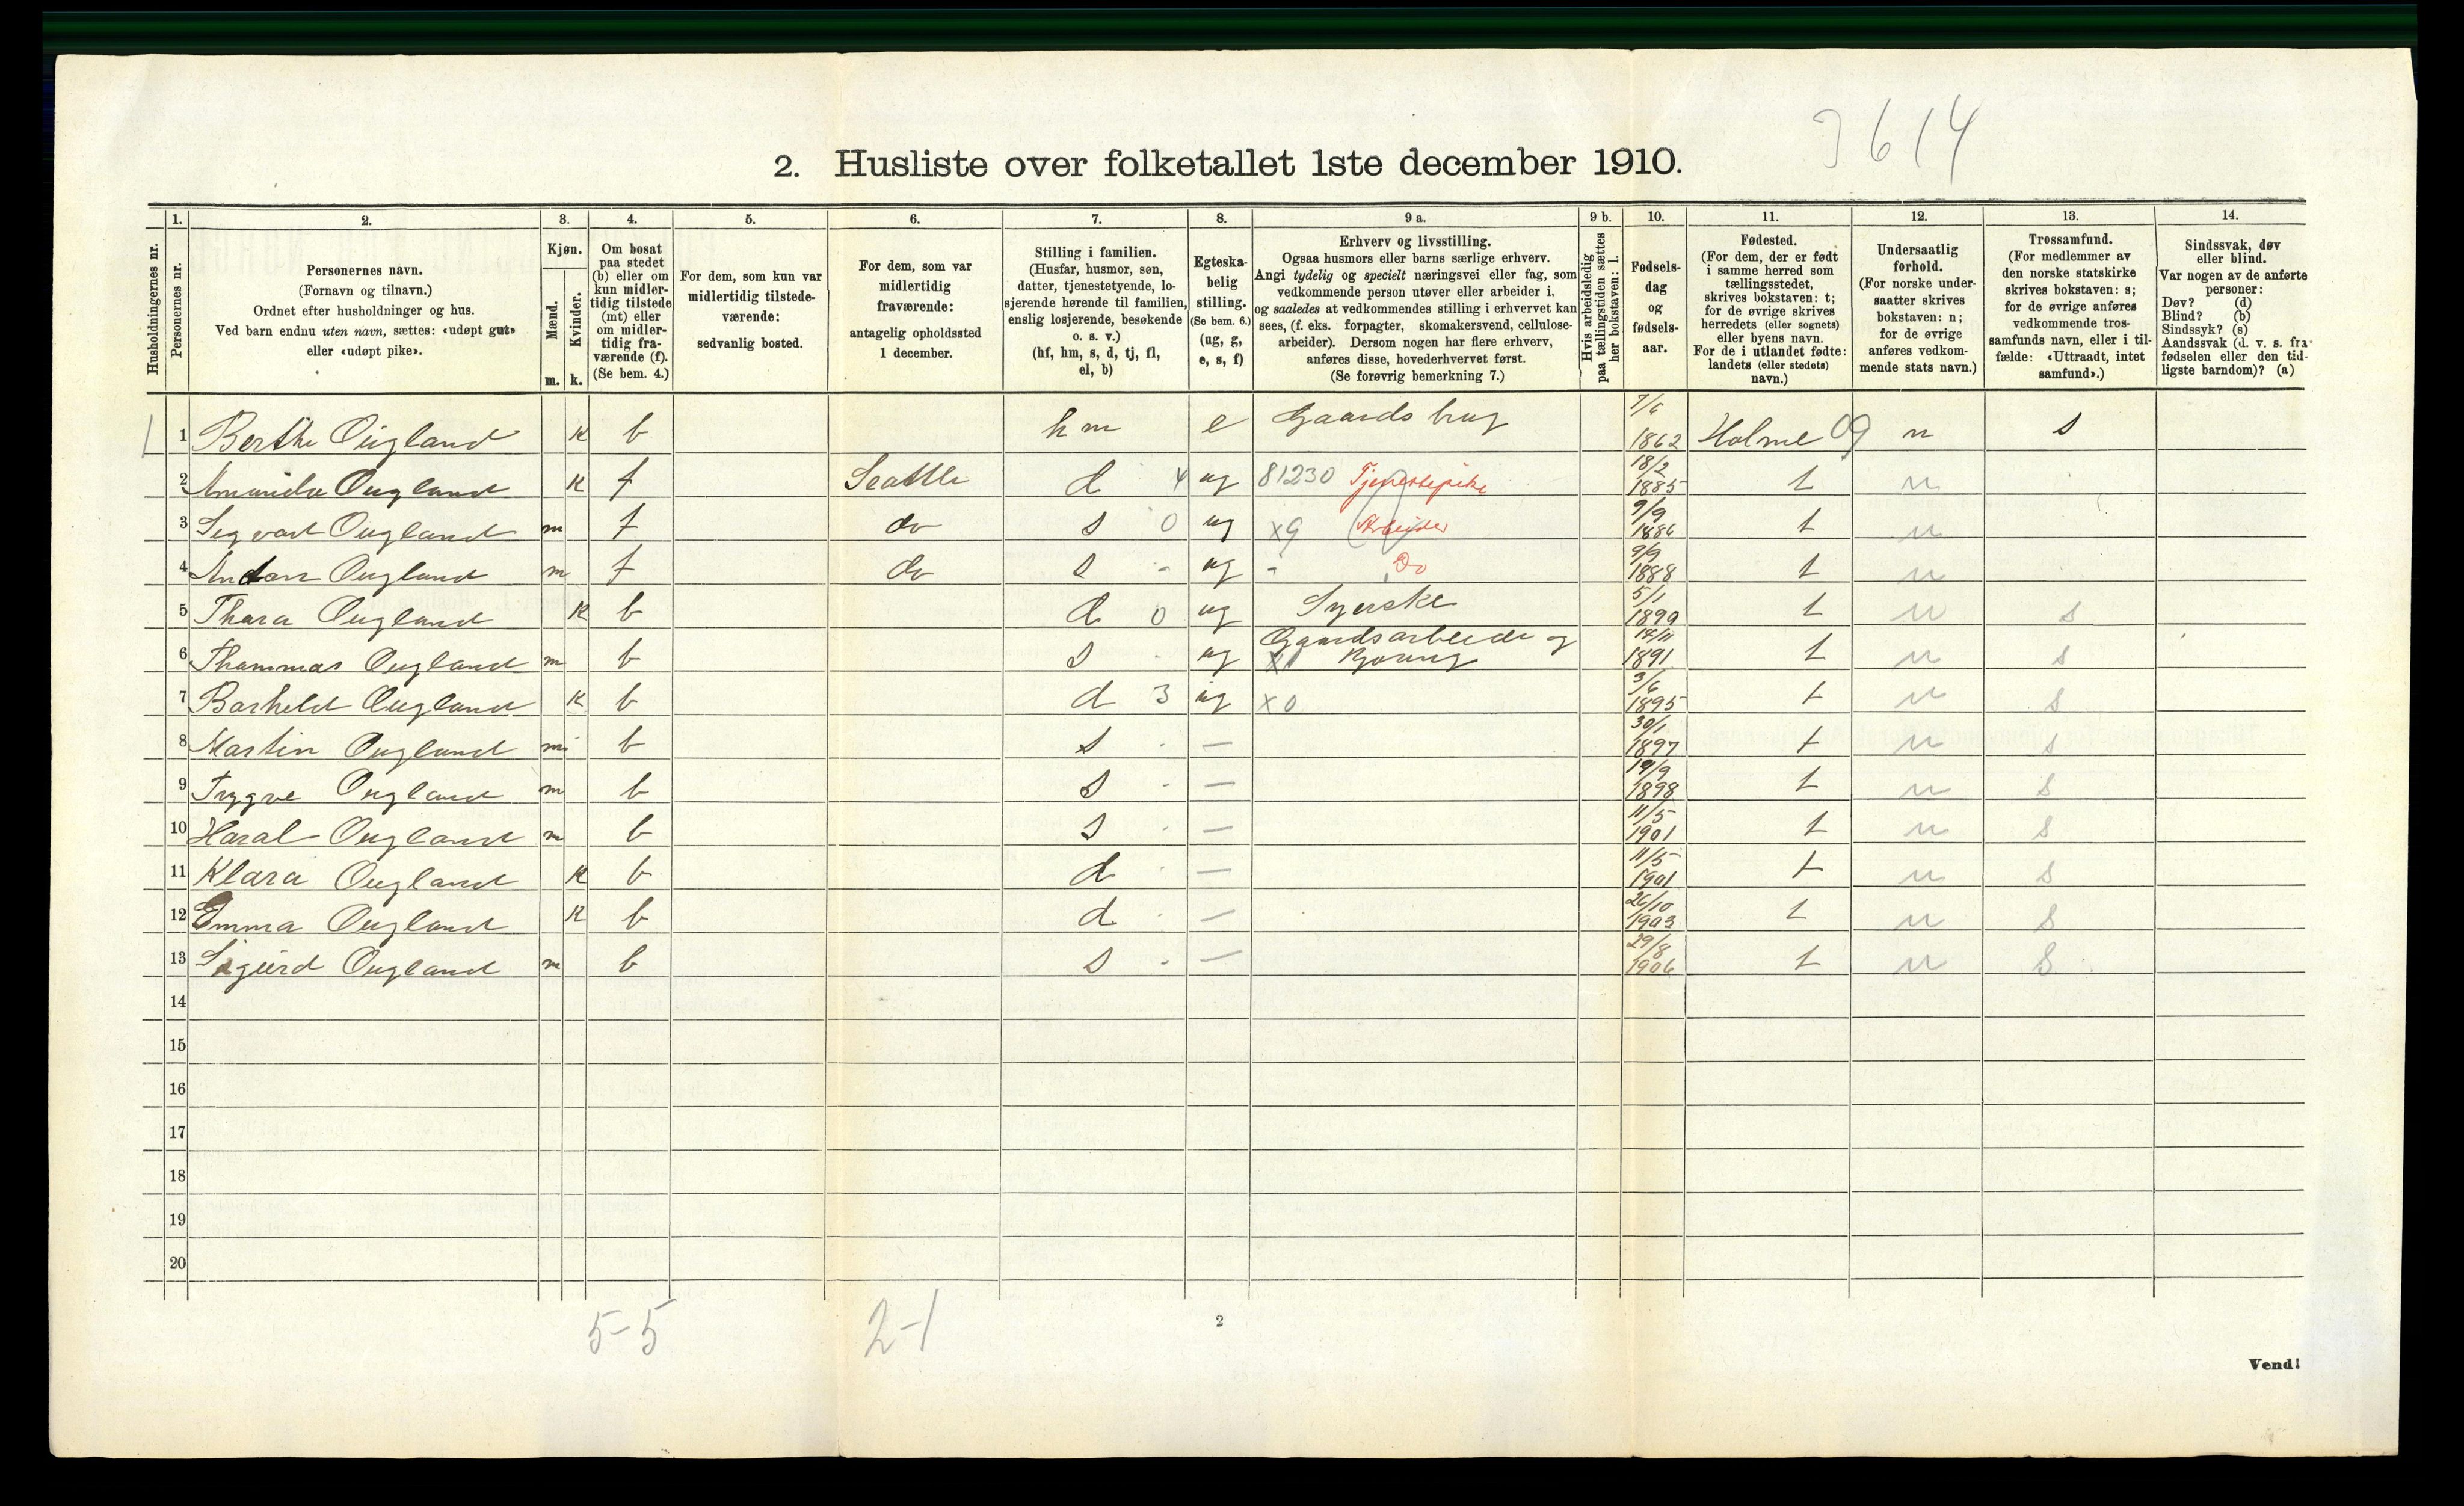 3614
2. Husliste over folketallet 1ste december 1910.
Husholdningernes nr.
1. Personernes nr.
2. Personernes navn.
(Fornavn og tilnavn.)
Ordnet efter husholdninger og hus.
Ved barn endnu uten navn, sættes: «udøpt gut»
eller «udøpt pike».
3. Kjøn.
Mænd. m.
Kvinder. k.
4. Om bosat
paa stedet
(b) eller om
kun midler-
tidig tilstede
(mt) eller
om midler-
tidig fra-
værende (f).
(Se bem. 4.)
5. For dem, som kun var
midlertidig tilstede-
værende:
sedvanlig bosted.
6. For dem, som var
midlertidig
fraværende:
antagelig opholdssted
1 december.
7. Stilling i familien.
(Husfar, husmor, søn,
datter, tjenestetyende, lo-
sjerende hørende til familien,
enslig losjerende, besøkende
o. s. v.)
(hf, hm, s, d, tj, fl,
el, b)
8. Egteska-
belig
stilling.
(Se bem. 6.)
(ug, g,
e, s, f)
9 a. Erhverv og livsstilling.
Ogsaa husmors eller barns særlige erhverv.
Angi tydelig og specielt næringsvei eller fag, som
vedkommende person utøver eller arbeider i,
og saaledes at vedkommendes stilling i erhvervet kan
sees, (f. eks. forpagter, skomakersvend, cellulose-
arbeider). Dersom nogen har flere erhverv,
anføres disse, hovederhvervet først.
(Se forøvrig bemerkning 7.)
9 b. Hvis arbeidsledig
paa tællingstiden sættes
her bokstaven: l.
10. Fødsels-
dag
og
fødsels-
aar.
11. Fødested.
(For dem, der er født
i samme herred som
tællingsstedet,
skrives bokstaven: t;
for de øvrige skrives
herredets (eller sognets)
eller byens navn.
For de i utlandet fødte:
landets (eller stedets)
navn.)
12. Undersaatlig
forhold.
(For norske under-
saatter skrives
bokstaven: n;
for de øvrige
anføres vedkom-
mende stats navn.)
13. Trossamfund.
(For medlemmer av
den norske statskirke
skrives bokstaven: s;
for de øvrige anføres
vedkommende tros-
samfunds navn, eller i til-
fælde: «Uttraadt, intet
samfund».)
14. Sindssvak, døv
eller blind.
Var nogen av de anførte
personer:
Døv? (d)
Blind? (b)
Sindssyk? (s)
Aandssvak (d. v. s. fra
fødselen eller den tid-
ligste barndom)? (a)
1 Berthe Ougland k b hm e Gaardsbrug 7/6 1862 Holme 09 n s
2 Amanda Ougland k f Seattle d 4 ug 81230 Tjenestepike 18/2 1885 t n
3 Segvart Ougland m f do s 0 ug x9 Arbeider 9/9 1886 t n
4 Ougland m f do s - ug - Do 9/9 1888 t n
5 Thara Ougland k b d 0 ug Syerske 5/1 1890 t n s
6 Thommas Ougland m b s - ug Gaardsarbeide og
14/11 1891 t n s
7 Barheld Ougland k b d 3 ug x0 3/6 1895 t n s
8 Martin Ougland m b s - — 30/1 1897 t n s
9 Trygve Ougland m b s - — 19/9 1898 t n s
10 Haral Ougland m b s - — 11/5 1901 t n s
11 Klara Ougland k b d - — 11/5 1901 t n s
12 Emma Ougland k b d - — 26/10 1903 t n s
13 Sigurd Ougland m b s - — 29/8 1906 t n s
14
15
16
17
18
19
20
5-5 2-1
2
Vend!